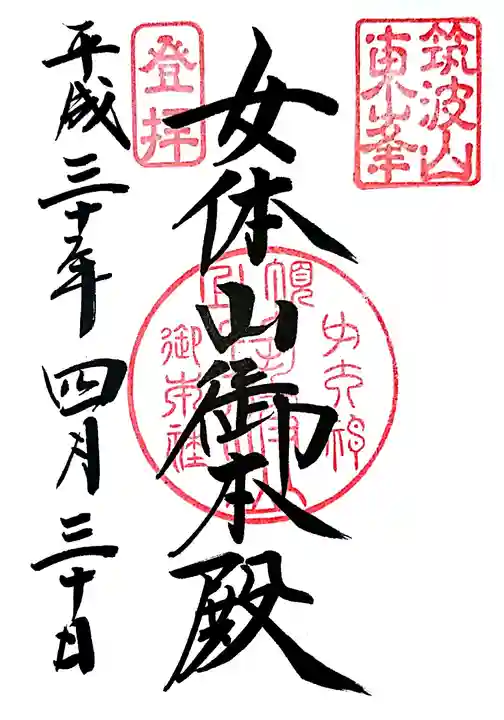 筑波山
東峯
登拝
女体山御本殿
平成三十年四月三十日